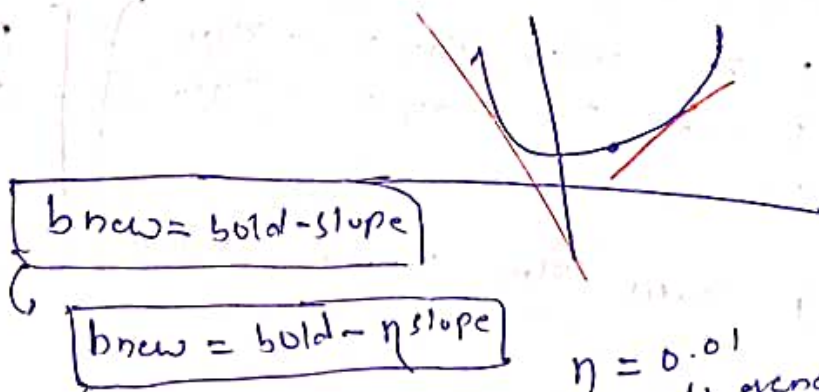 bnew = bold - slope
bnew = bold - η slope
η = 0.01